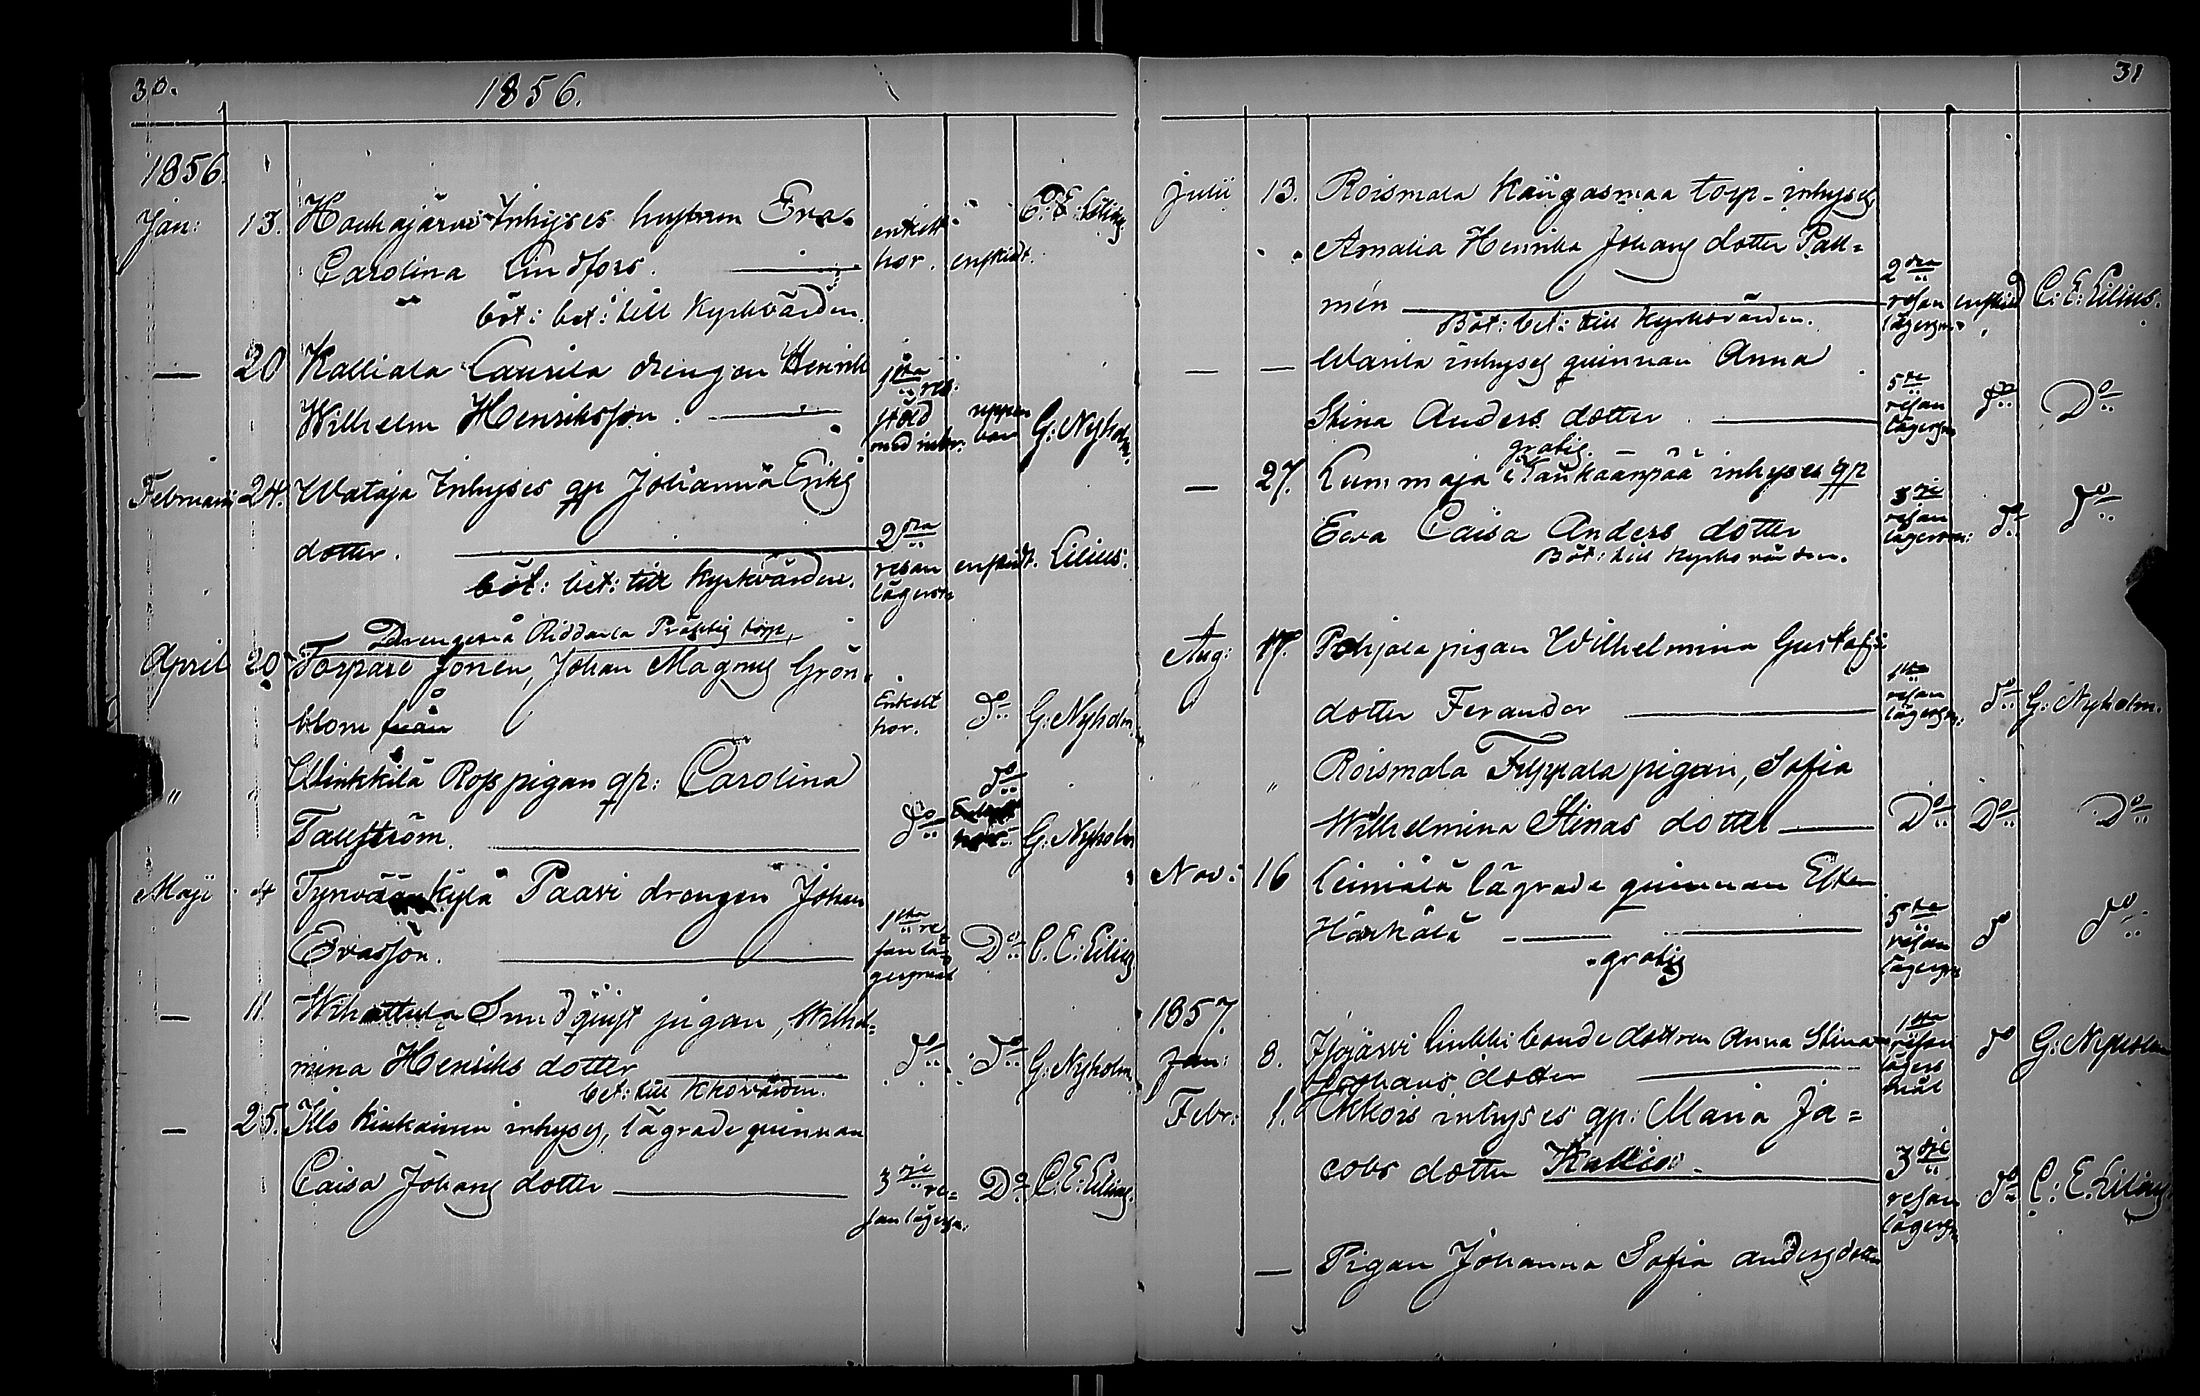 30.
1856.
1856.
Jan: 13. Houhajärvi Inhyses hustrun Eva
Carolina Lindfors. enkelt hor. enskildt. C: E: Lilius
böt: bet: till Kyrkvärden.
— 20 Kalliala Laurila drengen Henrik
Wilhelm Henriksson. 1sta res: stöld med inbr. uppenbar G: Nyholm.
Februari 24. Wataja Inhyses qp Johanna Eriks
dotter. 2dra resan lägersm. enskildt. Lilius.
böt: bet: till Kyrkvärden.
Drengen å Riddarla Prästlig torp,
April 20 Torpare sonen, Johan Magnus Grön-
blom från Enkelt hor. do G: Nyholm.
" Winkkilä Ropo pigan qp: Carolina
Tallström. do do G: Nyholm
Maji 4 Tyrväänkylä Paavi drengen Johan
Evasson. 1sta resan lägersmål Do C. E: Lilius
— 11. Wihattula Sundqvist pigan, Wilhel-
mina Henriks dotter do do G: Nyholm.
bet: till Kkovärden.
— 25. Illo Kiukainen inhyses, lägrade quinnan
Caisa Johans dotter 3dje resan lägersm. Do C. E: Lilius.
31
Julii 13. Roismala Kangasmaa torp-inhyses
Amalia Henrika Johans dotter Pall-
mén 2dra resan lägersm. enskild C: E: Lilius.
Böt: bet: till Kyrkovärden.
— — Warila inhyses quinnan Anna
Stina Anders dotter 5te resan lägersm do Do
gratis.
— 27. Lummaja Haukaanpää inhyses qp
Eva Caisa Anders dotter 3dje resan lägersm: do do
Böt: till Kyrkovärden.
Aug: 17. Pohjala pigan Wilhelmina Gustafs
dotter Ferander 1sta resan lägersm: do G: Nyholm.
" Roismala Filppala pigan, Sofia
Wilhelmina Stinas dotter Do Do Do
Nov: 16 Leiniälä lägrade quinnan Ester
Härkälä 5te resan lägersm do do
gratis
1857.
Jan: 8. Isojärvi Linkki bonde dottren Anna Stina
Johans dotter 1sta resan lägersmål do G: Nyholm
Febr: 1. Nkkois inhyses qp: Maria Ja-
cobs dotter Kallio 3dje resan lägersm do C: E. Lilius
— Pigan Johanna Sofia Anders dotter